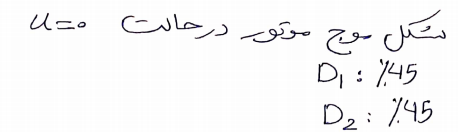 شکل موج موتور در حالت u=0
D1 : %45
D2 : %45